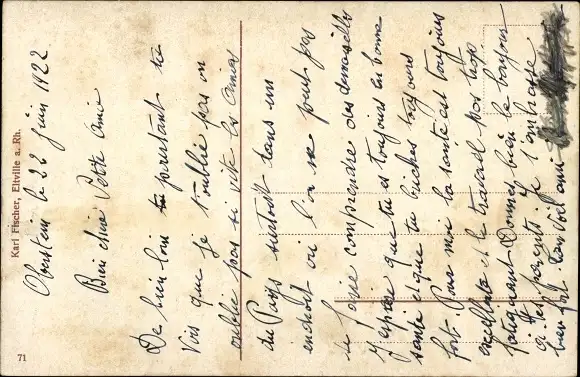 Karl Fischer, Eltville a. Rh.
71
Oberstein le 22 Juin 1922
Bien chère Petite Amie
De bien loin tu pourtant tu
vois que je t'oublie pas on
oublie pas si vite les amies
du Pays surtout dans un
endroit où l'on ne peut pas
se faire comprendre des demoiselles
J'espère que tu es toujours en bonne
santé et que tu bûches toujours
fort. Pour moi la santé est toujours
excellente et le travail pas trop
fatiguant Donnes bien le bonjour
à tes parents. Je t'embrasse
bien fort ton vieil ami